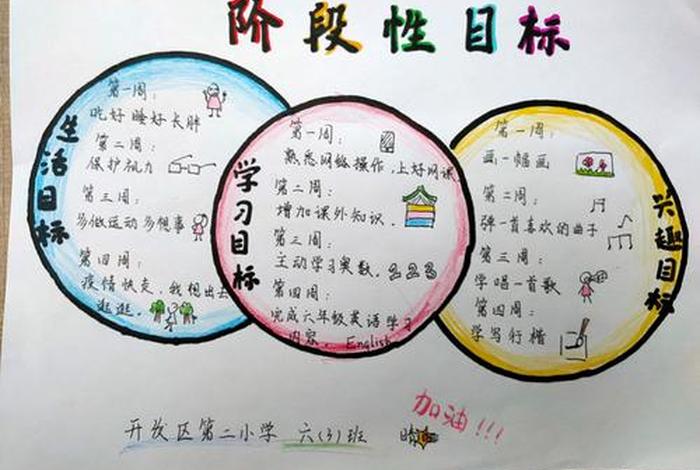 阶段性目标
生活目标
第一周：
吃好 睡好 长胖
第二周：
保护视力
第三周：
多做运动 多想事
第四周：
疫情快走，我想出去
逛逛.
学习目标
第一周：
熟悉网络操作.上好网课.
第二周：
增加课外知识.
第三周：
主动学习奥数.
第四周：
完成六年级英语学习
内容. English
兴趣目标
第一周：
画一幅画
第二周：
弹一首喜欢的曲子
第三周：
学唱一首歌
第四周：
学写行楷
加油!!!
开发区第二小学 六(3)班